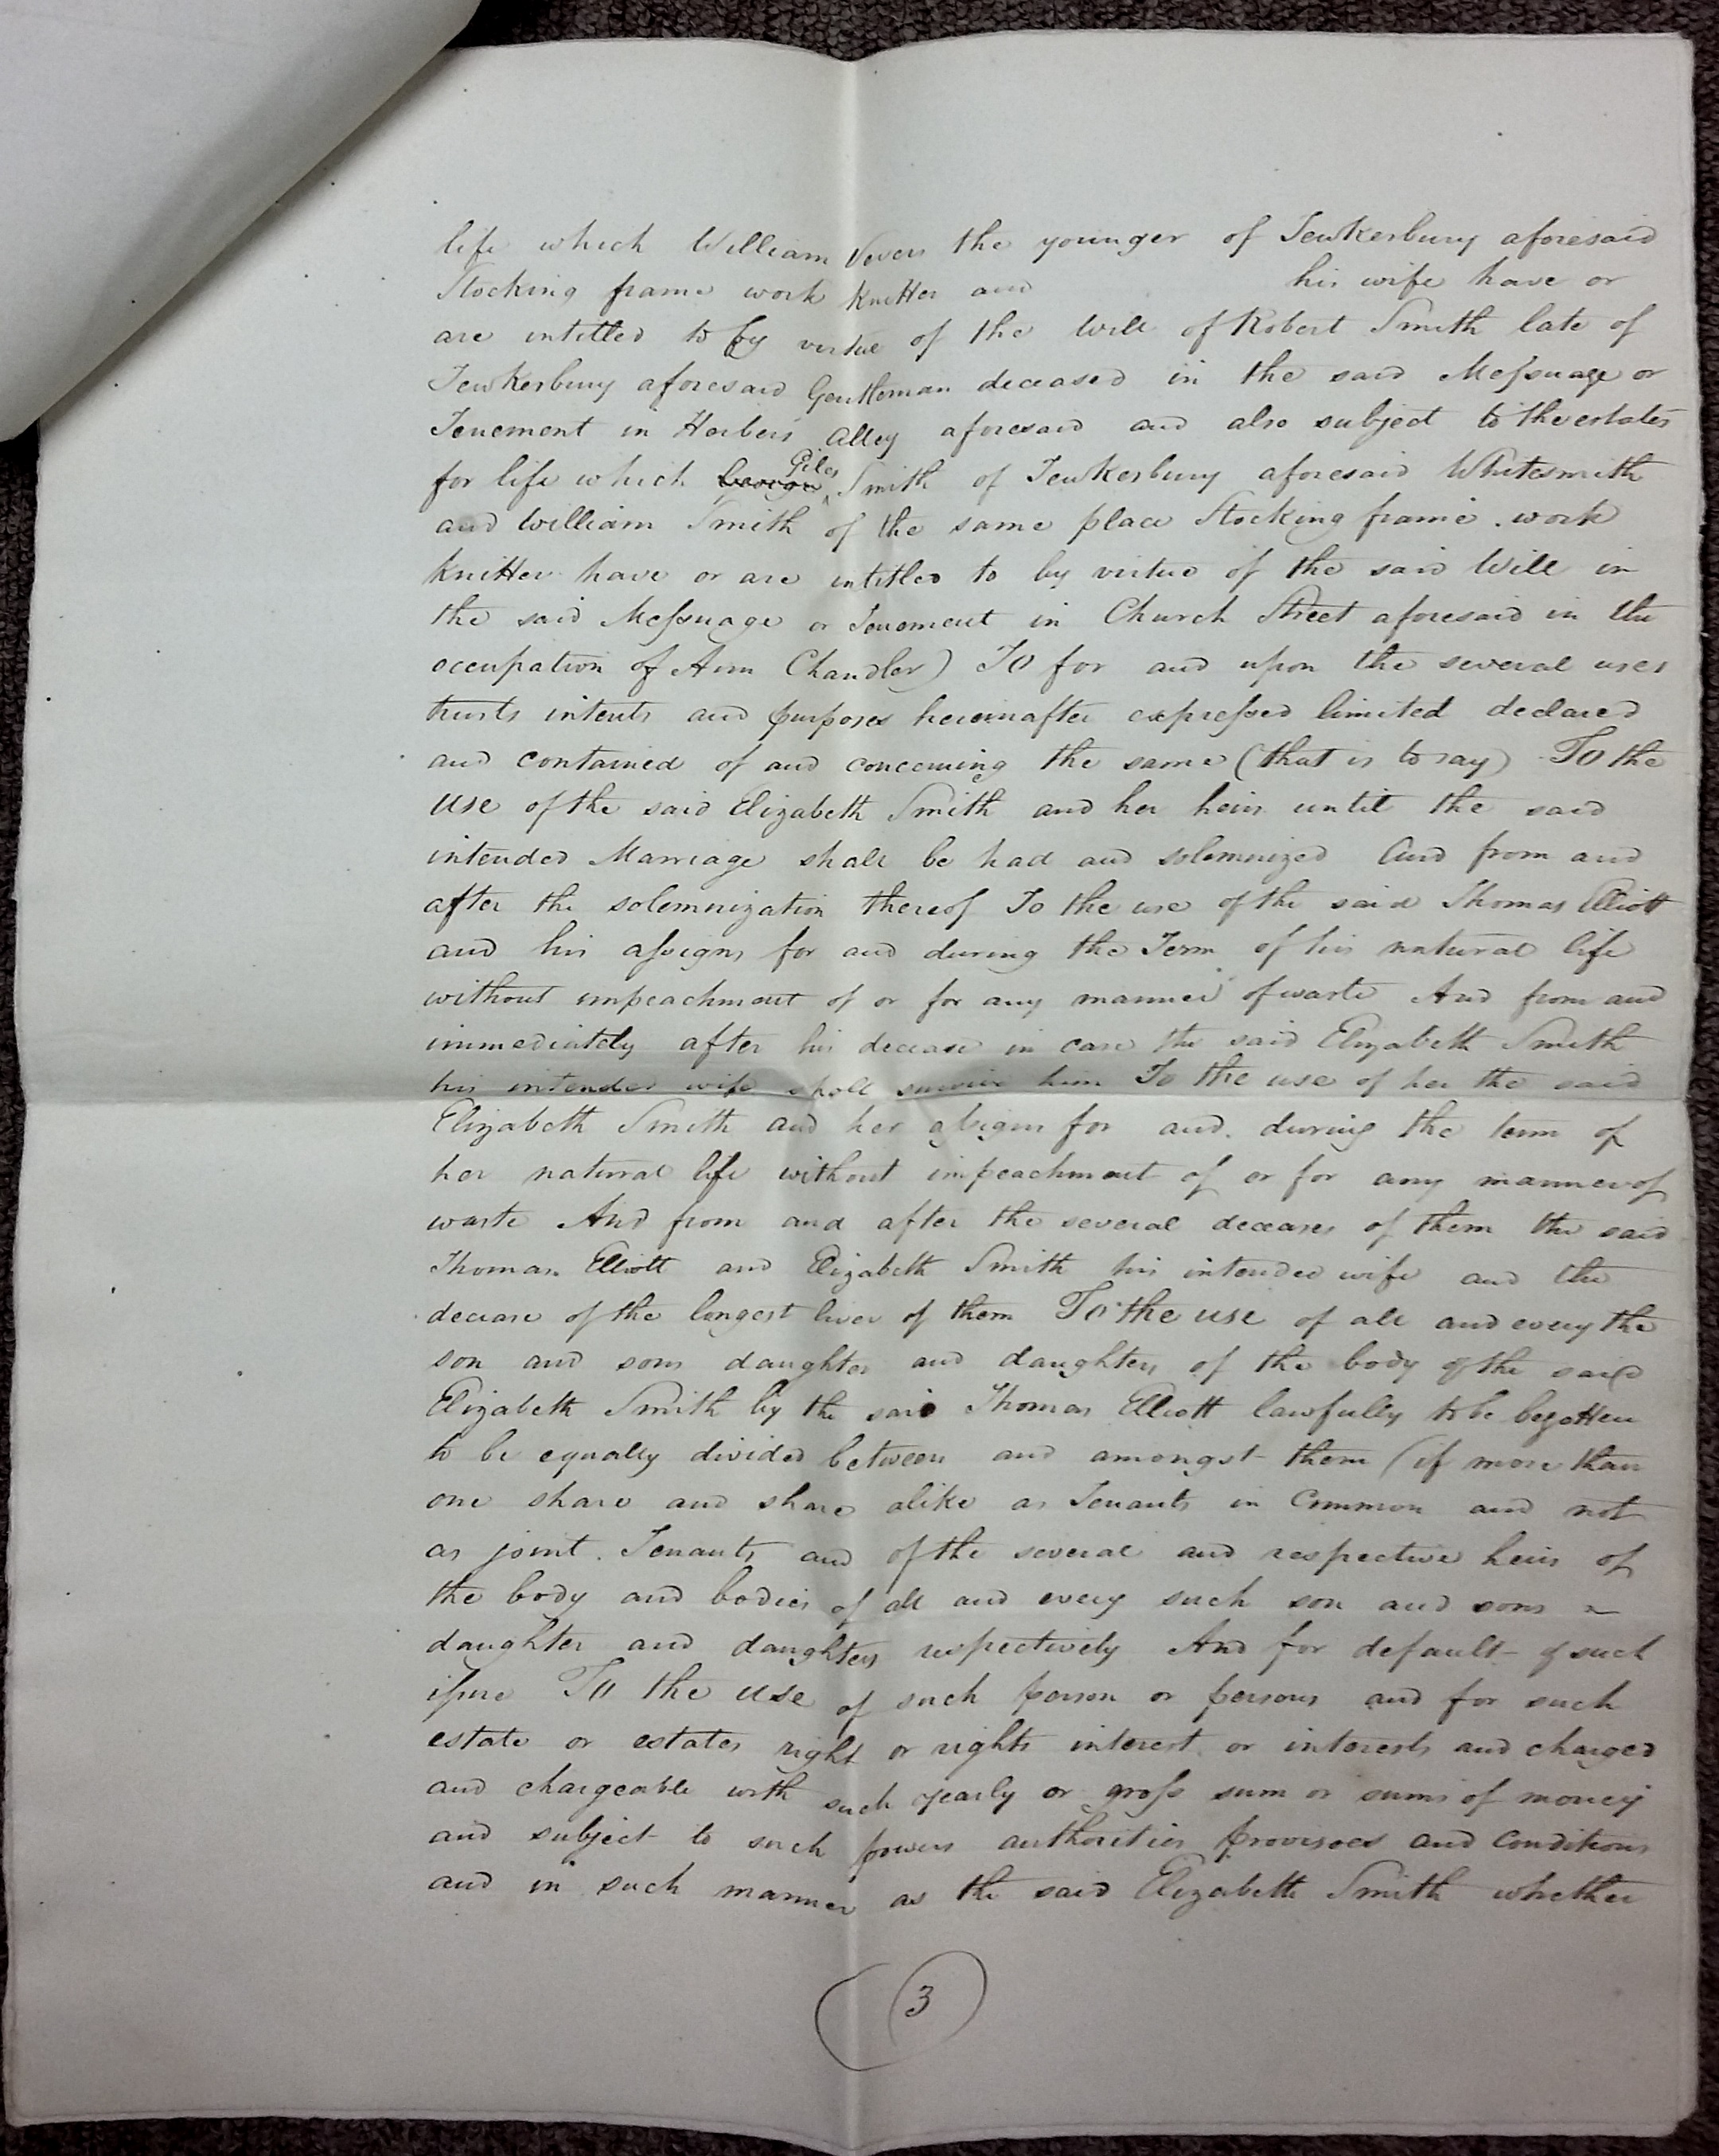 life which William Vevers the younger of Tewkesbury aforesaid
Stocking frame work knitter and his wife have or
are intitled to by virtue of the Will of Robert Smith late of
Tewkesbury aforesaid Gentleman deceased in the said Messuage or
Tenement in Alley aforesaid and also subject to the estates
for life which George Giles Smith of Tewkesbury aforesaid Whitesmith
and William Smith of the same place Stocking frame work
knitter have or are intitled to by virtue of the said Will in
the said Messuage or Tenement in Church Street aforesaid in the
occupation of Ann Chandler) To for and upon the several uses
trusts intents and purposes hereinafter expressed limited declared
and contained of and concerning the same (that is to say) To the
use of the said Elizabeth Smith and her heirs until the said
intended Marriage shall be had and solemnized And from and
after the solemnization thereof To the use of the said Thomas Elliott
and his assigns for and during the Term of his natural life
without impeachment of or for any manner of waste And from and
immediately after his decease in case the said Elizabeth Smith
his intended wife shall survive him To the use of her the said
Elizabeth Smith and her assigns for and during the term of
her natural life without impeachment of or for any manner of
waste And from and after the several deceases of them the said
Thomas Elliott and Elizabeth Smith his intended wife and the
decease of the longest liver of them To the use of all and every the
son and sons daughter and daughters of the body of the said
Elizabeth Smith by the said Thomas Elliott lawfully to be begotten
to be equally divided between and amongst them (if more than
one share and share alike as Tenants in Common and not
as joint Tenants and of the several and respective heirs of
the body and bodies of all and every such son and sons
daughter and daughters respectively And for default of such
issue To the use of such person or persons and for such
estate or estates right or rights interest or interests and charged
and chargeable with such yearly or gross sum or sums of money
and subject to such powers authorities provisoes and Conditions
and in such manner as the said Elizabeth Smith whether
3